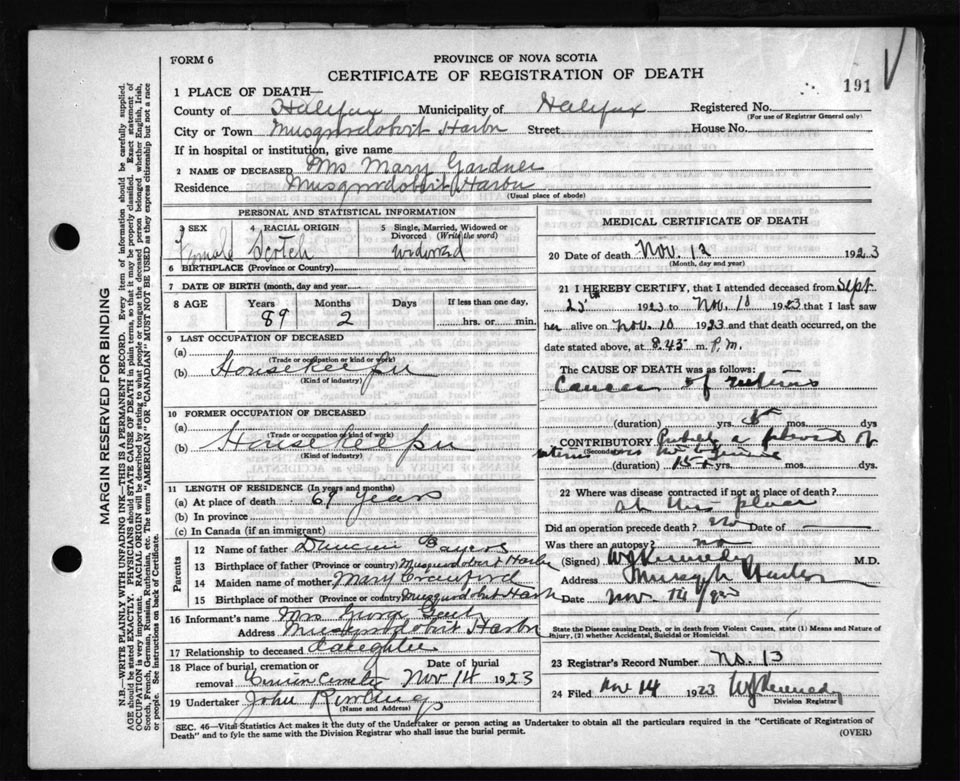 FORM 6
PROVINCE OF NOVA SCOTIA
CERTIFICATE OF REGISTRATION OF DEATH
191
1 PLACE OF DEATH—
County of Halifax Municipality of Halifax Registered No.
(For use of Registrar General only)
City or Town Musquodoboit Harbor Street House No.
If in hospital or institution, give name
2 NAME OF DECEASED Mrs Mary Gardner
Residence Musquodoboit Harbor
(Usual place of abode)
MARGIN RESERVED FOR BINDING
N.B.—WRITE PLAINLY WITH UNFADING INK—THIS IS A PERMANENT RECORD. Every item of information should be carefully supplied.
AGE should be stated EXACTLY. PHYSICIANS should STATE CAUSE OF DEATH in plain terms, so that it may be properly classified. Exact statement of
OCCUPATION is very important. RACIAL ORIGIN will be described by stating to what people or tongue the deceased person belonged, whether English, Irish,
Scotch, French, German, Russian, Ruthenian, etc. The terms "AMERICAN" or "CANADIAN" MUST NOT BE USED as they express citizenship but not a race
or people. See instructions on back of Certificate.
PERSONAL AND STATISTICAL INFORMATION
3 SEX 4 RACIAL ORIGIN 5 Single, Married, Widowed or
Divorced (Write the word)
Female Scotch Widowed
6 BIRTHPLACE (Province or Country)
7 DATE OF BIRTH (month, day and year)
8 AGE Years Months Days If less than one day,
89 2 hrs. or min.
9 LAST OCCUPATION OF DECEASED
(a)
(Trade or occupation or kind of work)
(b) Housekeeper
(Kind of industry)
10 FORMER OCCUPATION OF DECEASED
(a)
(Trade or occupation or kind of work)
(b) Housekeeper
(Kind of industry)
11 LENGTH OF RESIDENCE (In years and months)
(a) At place of death 69 Years
(b) In province
(c) In Canada (if an immigrant)
Parents
12 Name of father Duncan Bayers
13 Birthplace of father (Province or country) Musquodoboit Harbor
14 Maiden name of mother Mary Crawford
15 Birthplace of mother (Province or country) Musquodoboit Harb
16 Informant's name Mrs George
Address Musquodoboit Harbor
17 Relationship to deceased daughter
18 Place of burial, cremation or Date of burial
removal Cemetery Nov 14 1923
19 Undertaker John Rowlings
(Name and Address)
MEDICAL CERTIFICATE OF DEATH
20 Date of death Nov. 12 1923
(Month, day and year)
21 I HEREBY CERTIFY, that I attended deceased from Sept
25th 1923 to Nov. 10 1923 that I last saw
her alive on Nov. 10 1923 and that death occurred, on
date stated above, at 8.45 m. P.M.
The CAUSE OF DEATH was as follows:
Cancer of uterus
(duration) yrs. mos. dys
CONTRIBUTORY a fibroid of
uterus
(Secondary)
(duration) yrs. mos. dys
22 Where was disease contracted if not at place of death?
at this place
Did an operation precede death? no Date of
Was there an autopsy? no
(Signed) W J Kennedy M.D.
Address Harbor
Date Nov. 14
State the Disease causing Death, or in death from Violent Causes, state (1) Means and Nature of
Injury, (2) whether Accidental, Suicidal or Homicidal.
23 Registrar's Record Number No. 13
24 Filed Nov 14 1923 W J Kennedy
Division Registrar
SEC. 46—Vital Statistics Act makes it the duty of the Undertaker or person acting as Undertaker to obtain all the particulars required in the "Certificate of Registration of
Death" and to fyle the same with the Division Registrar who shall issue the burial permit.
(OVER)